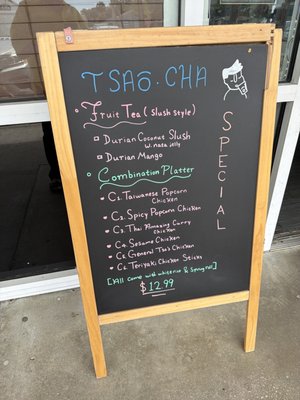 TSAō CHA
Fruit Tea (Slush style)
Durian Coconut Slush
w. nata jelly
Durian Mango
Combination Platter
C1. Taiwanese Popcorn
Chicken
C2. Spicy Popcorn Chicken
C3. Thai Amazing Curry
Chicken
C4. Sesame Chicken
C5. General Tso's Chicken
C6. Teriyaki Chicken Sticks
[All come with white rice & Spring roll]
$12.99
SPECIAL